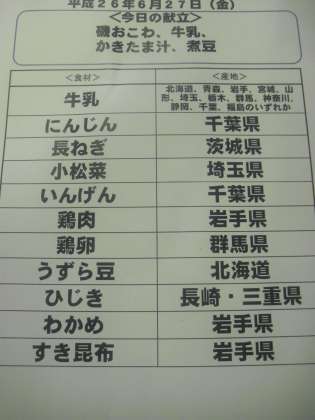 平成26年6月27日（金）
＜今日の献立＞
磯おこわ、牛乳、
かきたま汁、煮豆
＜食材＞ ＜産地＞
牛乳 北海道、青森、岩手、宮城、山
形、埼玉、栃木、群馬、神奈川、
静岡、千葉、福島のいずれか
にんじん 千葉県
長ねぎ 茨城県
小松菜 埼玉県
いんげん 千葉県
鶏肉 岩手県
鶏卵 群馬県
うずら豆 北海道
ひじき 長崎・三重県
わかめ 岩手県
すき昆布 岩手県